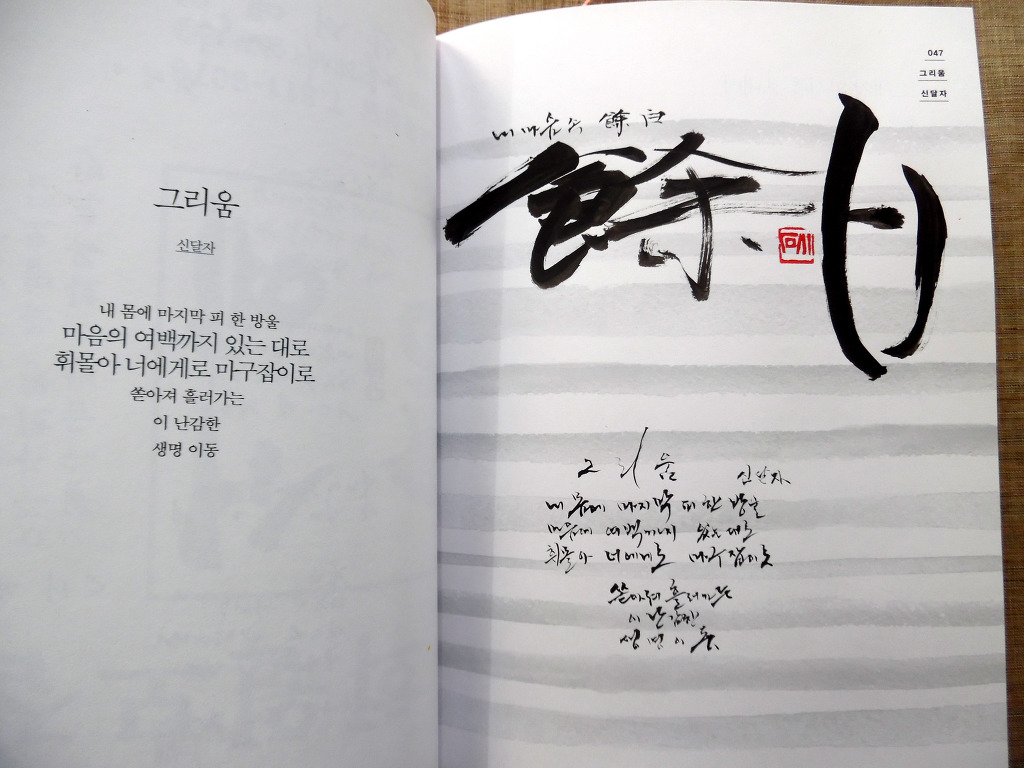 그리움
신달자
내 몸에 마지막 피 한 방울
마음의 여백까지 있는 대로
휘몰아 너에게로 마구잡이로
쏟아져 흘러가는
이 난감한
생명 이동
047
그리움
신달자
내 마음의 餘白
餘白
그리움
신달자
내 몸에 마지막 피 한 방울
마음에 여백까지 있는 대로
휘몰아 너에게로 마구잡이로
쏟아져 흘러가는
이 난감한
생명 이동